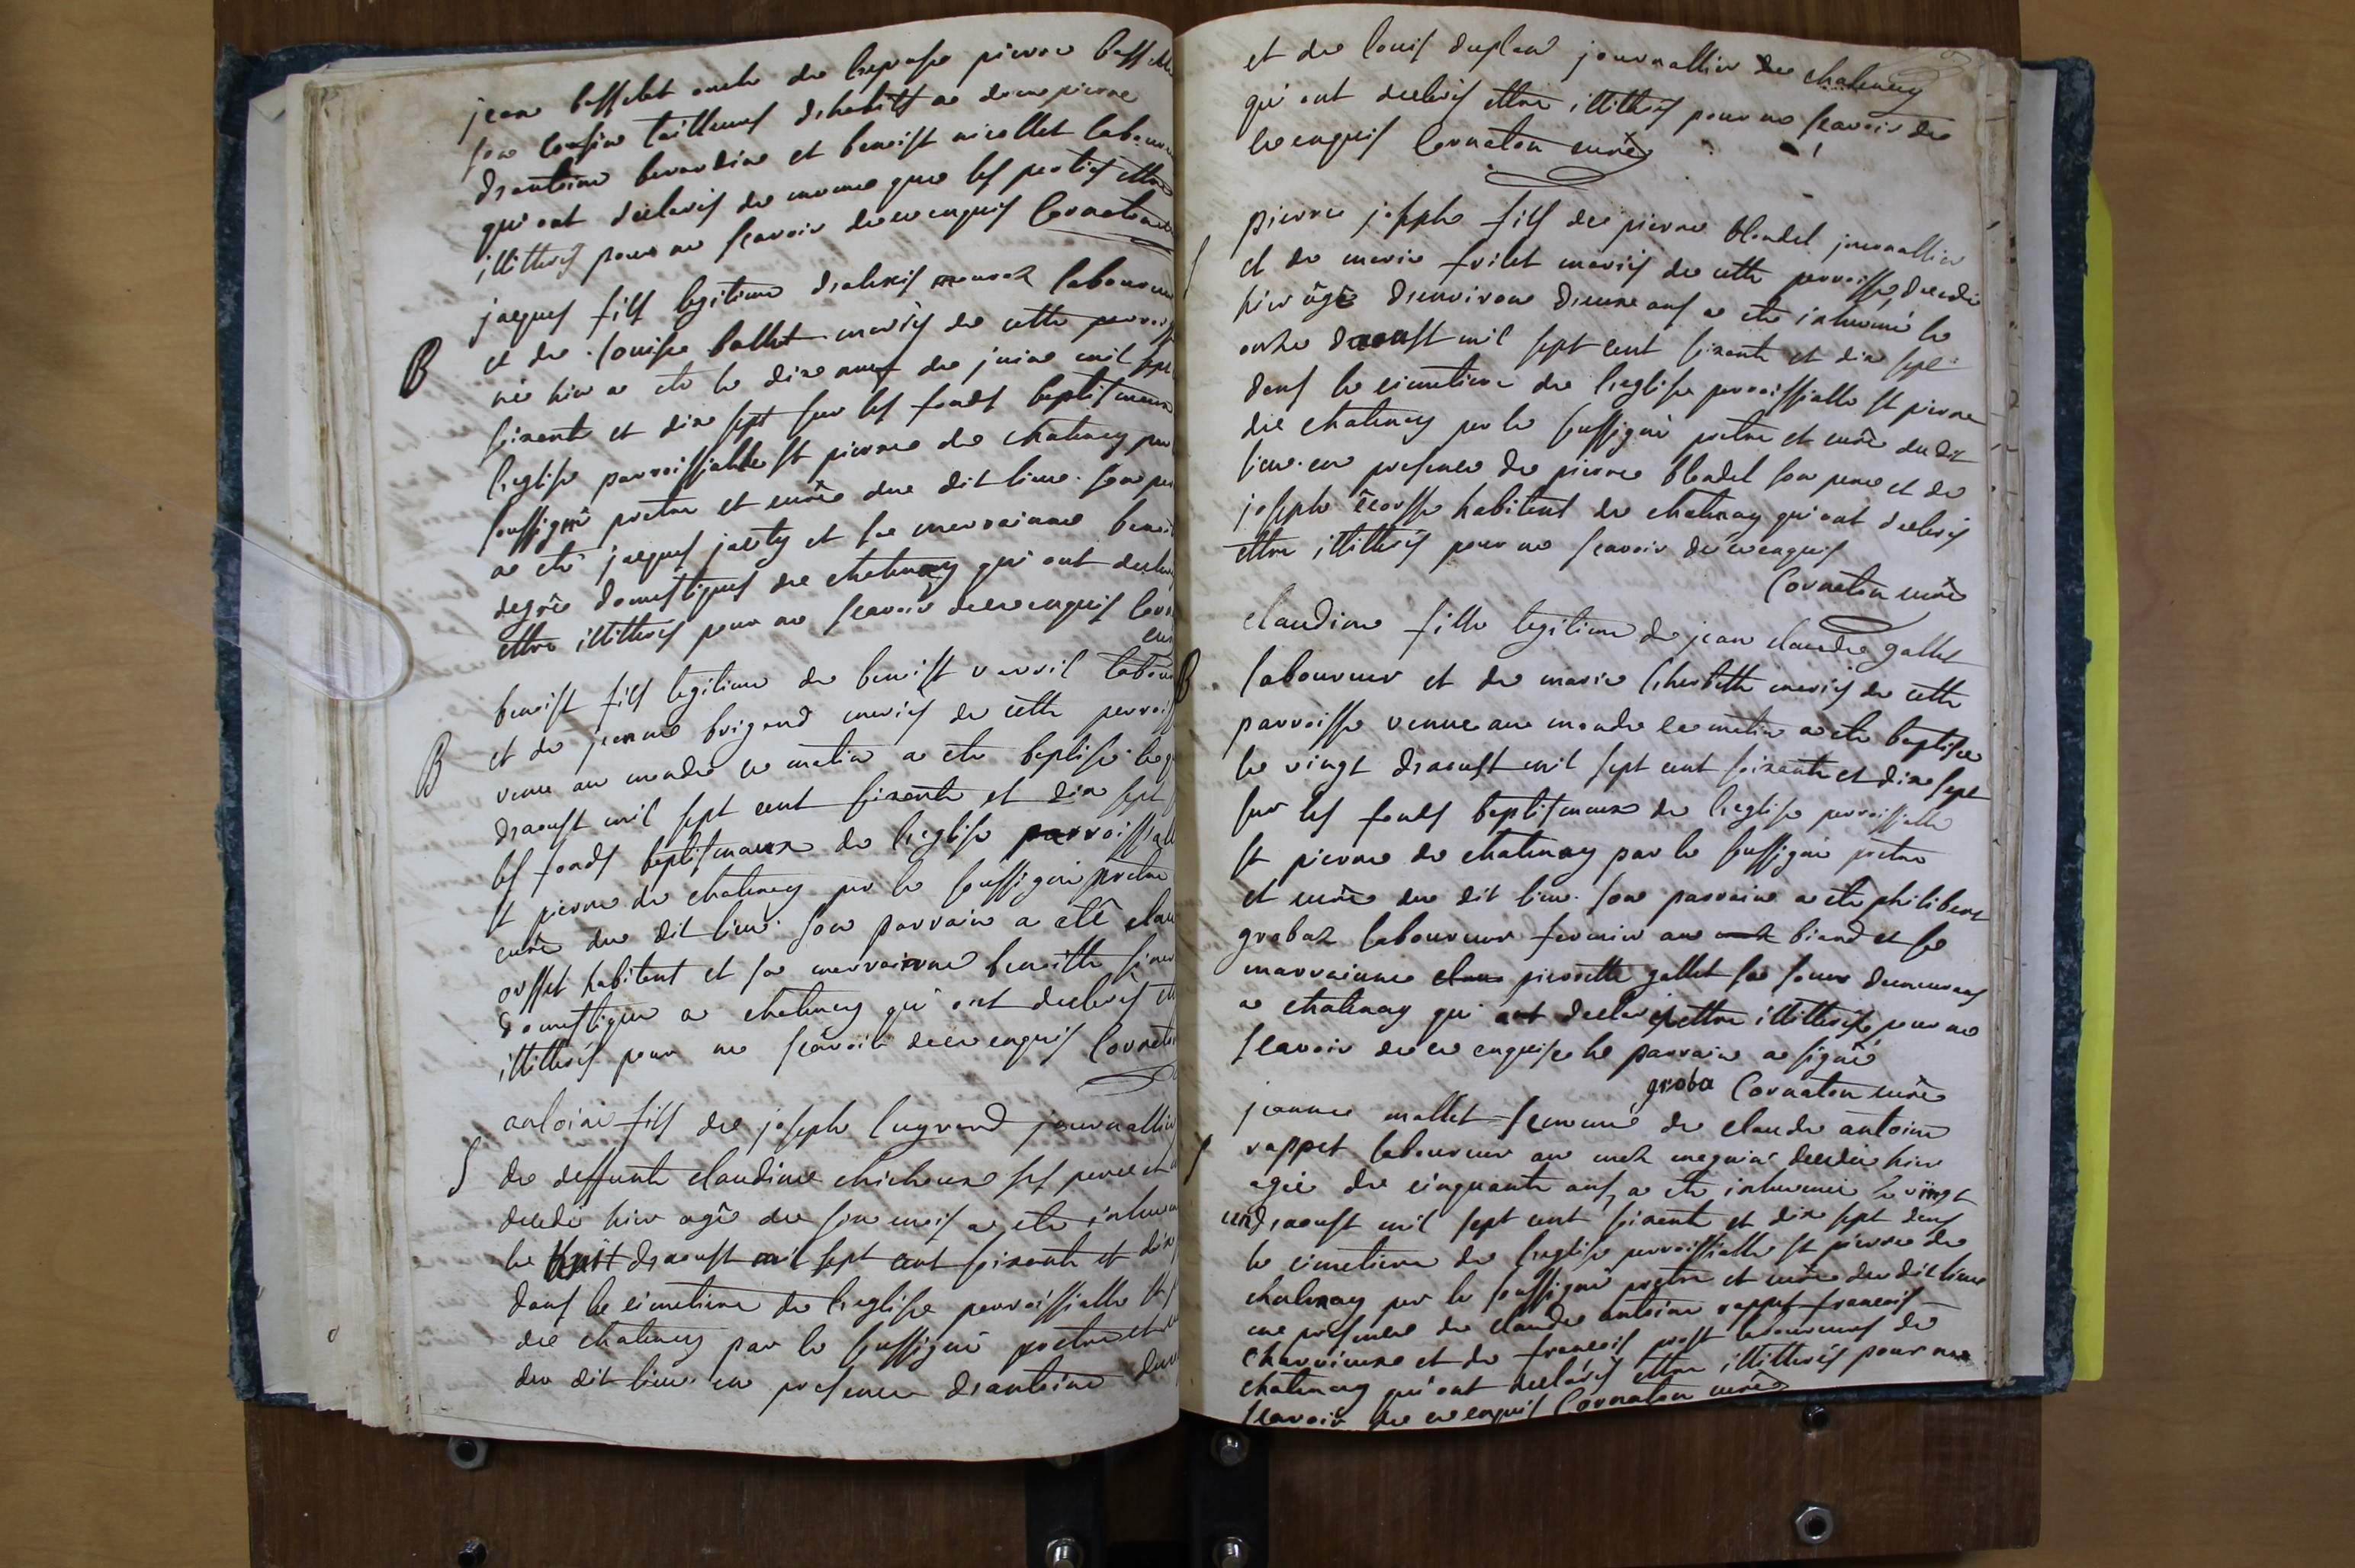 jean bassclet oncle de l'epouse pierre bass
son cousin tailleurs d'habits a dom pierre
d'antoine bernardin et benoist nicollet labour
qui ont declarés de meme que les partis ettre
illitterés pour ne scavoir de ce enquis Cornaton
jacques fils legitime d'alexis labour
B et de louise ballet mariés de cette parroiss
né hier a eté le dix neuf de juin mil sept
soixante et dix sept sur les fonds baptismaux
l'eglise parroissialle st pierre de chatenay par
soussigné pretre et curé du dit lieu. son par
a eté jacques et sa marrainne benoi
domestiques de chatenay qui ont declar
ettre illitterés pour ne scavoir de ce enquis Corn
cur
benoist fils legitime de benoist varril labou
B et de jeanne brigand mariés de cette parroiss
venu au monde ce matin a eté baptisé le
d'aoust mil sept cent soixante et dix sept
les fonds baptismaux de l'eglise parroissiall
st pierre de chatenay par le soussigné pretre
curé du dit lieu. son parrain a eté clau
orsset habitant et sa marrainne benoitte
domestique a chatenay qui ont declarés et
illitterés pour ne scavoir de ce enquis Cornato
antoine fils de joseph journallier
S de deffunte claudine ses pere et
decedé hier agé de six mois a eté inhum
le huit d'aoust mil sept cent soixante et dix
dans le cimetiere de l'eglise parroissialle st
de chatenay par le soussigné pretre et
du dit lieu en presence d'antoine
et de louis duplan journallier de chatenay
qui ont declarés ettre illitterés pour ne scavoir de
ce enquis Cornaton curé
pierre joseph fils de pierre blondel journallier
S et de marie frilet mariés de cette parroisse, decedé
hier âgé d'environ deux ans a eté inhumé le
onze d'aoust mil sept cent soixante et dix sept
dans le cimetiere de l'eglise parroissialle st pierre
de chatenay par le soussigné pretre et curé du dit
lieu. en presence de pierre blondel son pere et de
joseph écorsse habitant de chatenay qui ont declarés
ettre illitterés pour ne scavoir de ce enquis
Cornaton curé
claudine fille legitime de jean claude gallet
B laboureur et de marie mariés de cette
parroisse venue au monde ce matin a eté baptisée
le vingt d'aoust mil sept cent soixante et dix sept
sur les fonds baptismaux de l'eglise parroissialle
st pierre de chatenay par le soussigné pretre
et curé du dit lieu. son parrain a eté philibert
grabaz laboureur fermier au biard et sa
marrainne pierrette gallet sa soeur demeurans
a chatenay qui ont declarés ettre illitterés, pour ne
scavoir de ce enquise le parrain a signé
groba Cornaton curé
jeanne mallet femme de claude antoine
S rappet laboureur au decedée hier
agée de cinquante ans, a eté inhumée le vingt
un d'aoust mil sept cent soixante et dix sept dans
le cimetiere de l'eglise parroissialle st pierre de
chatenay par le soussigné pretre et curé du dit lieu
en presence de claude antoine rappet francois
charvieux et de francois prost laboureurs de
chatenay qui ont declarés ettre illitterés pour ne
scavoir de ce enquis Cornaton curé